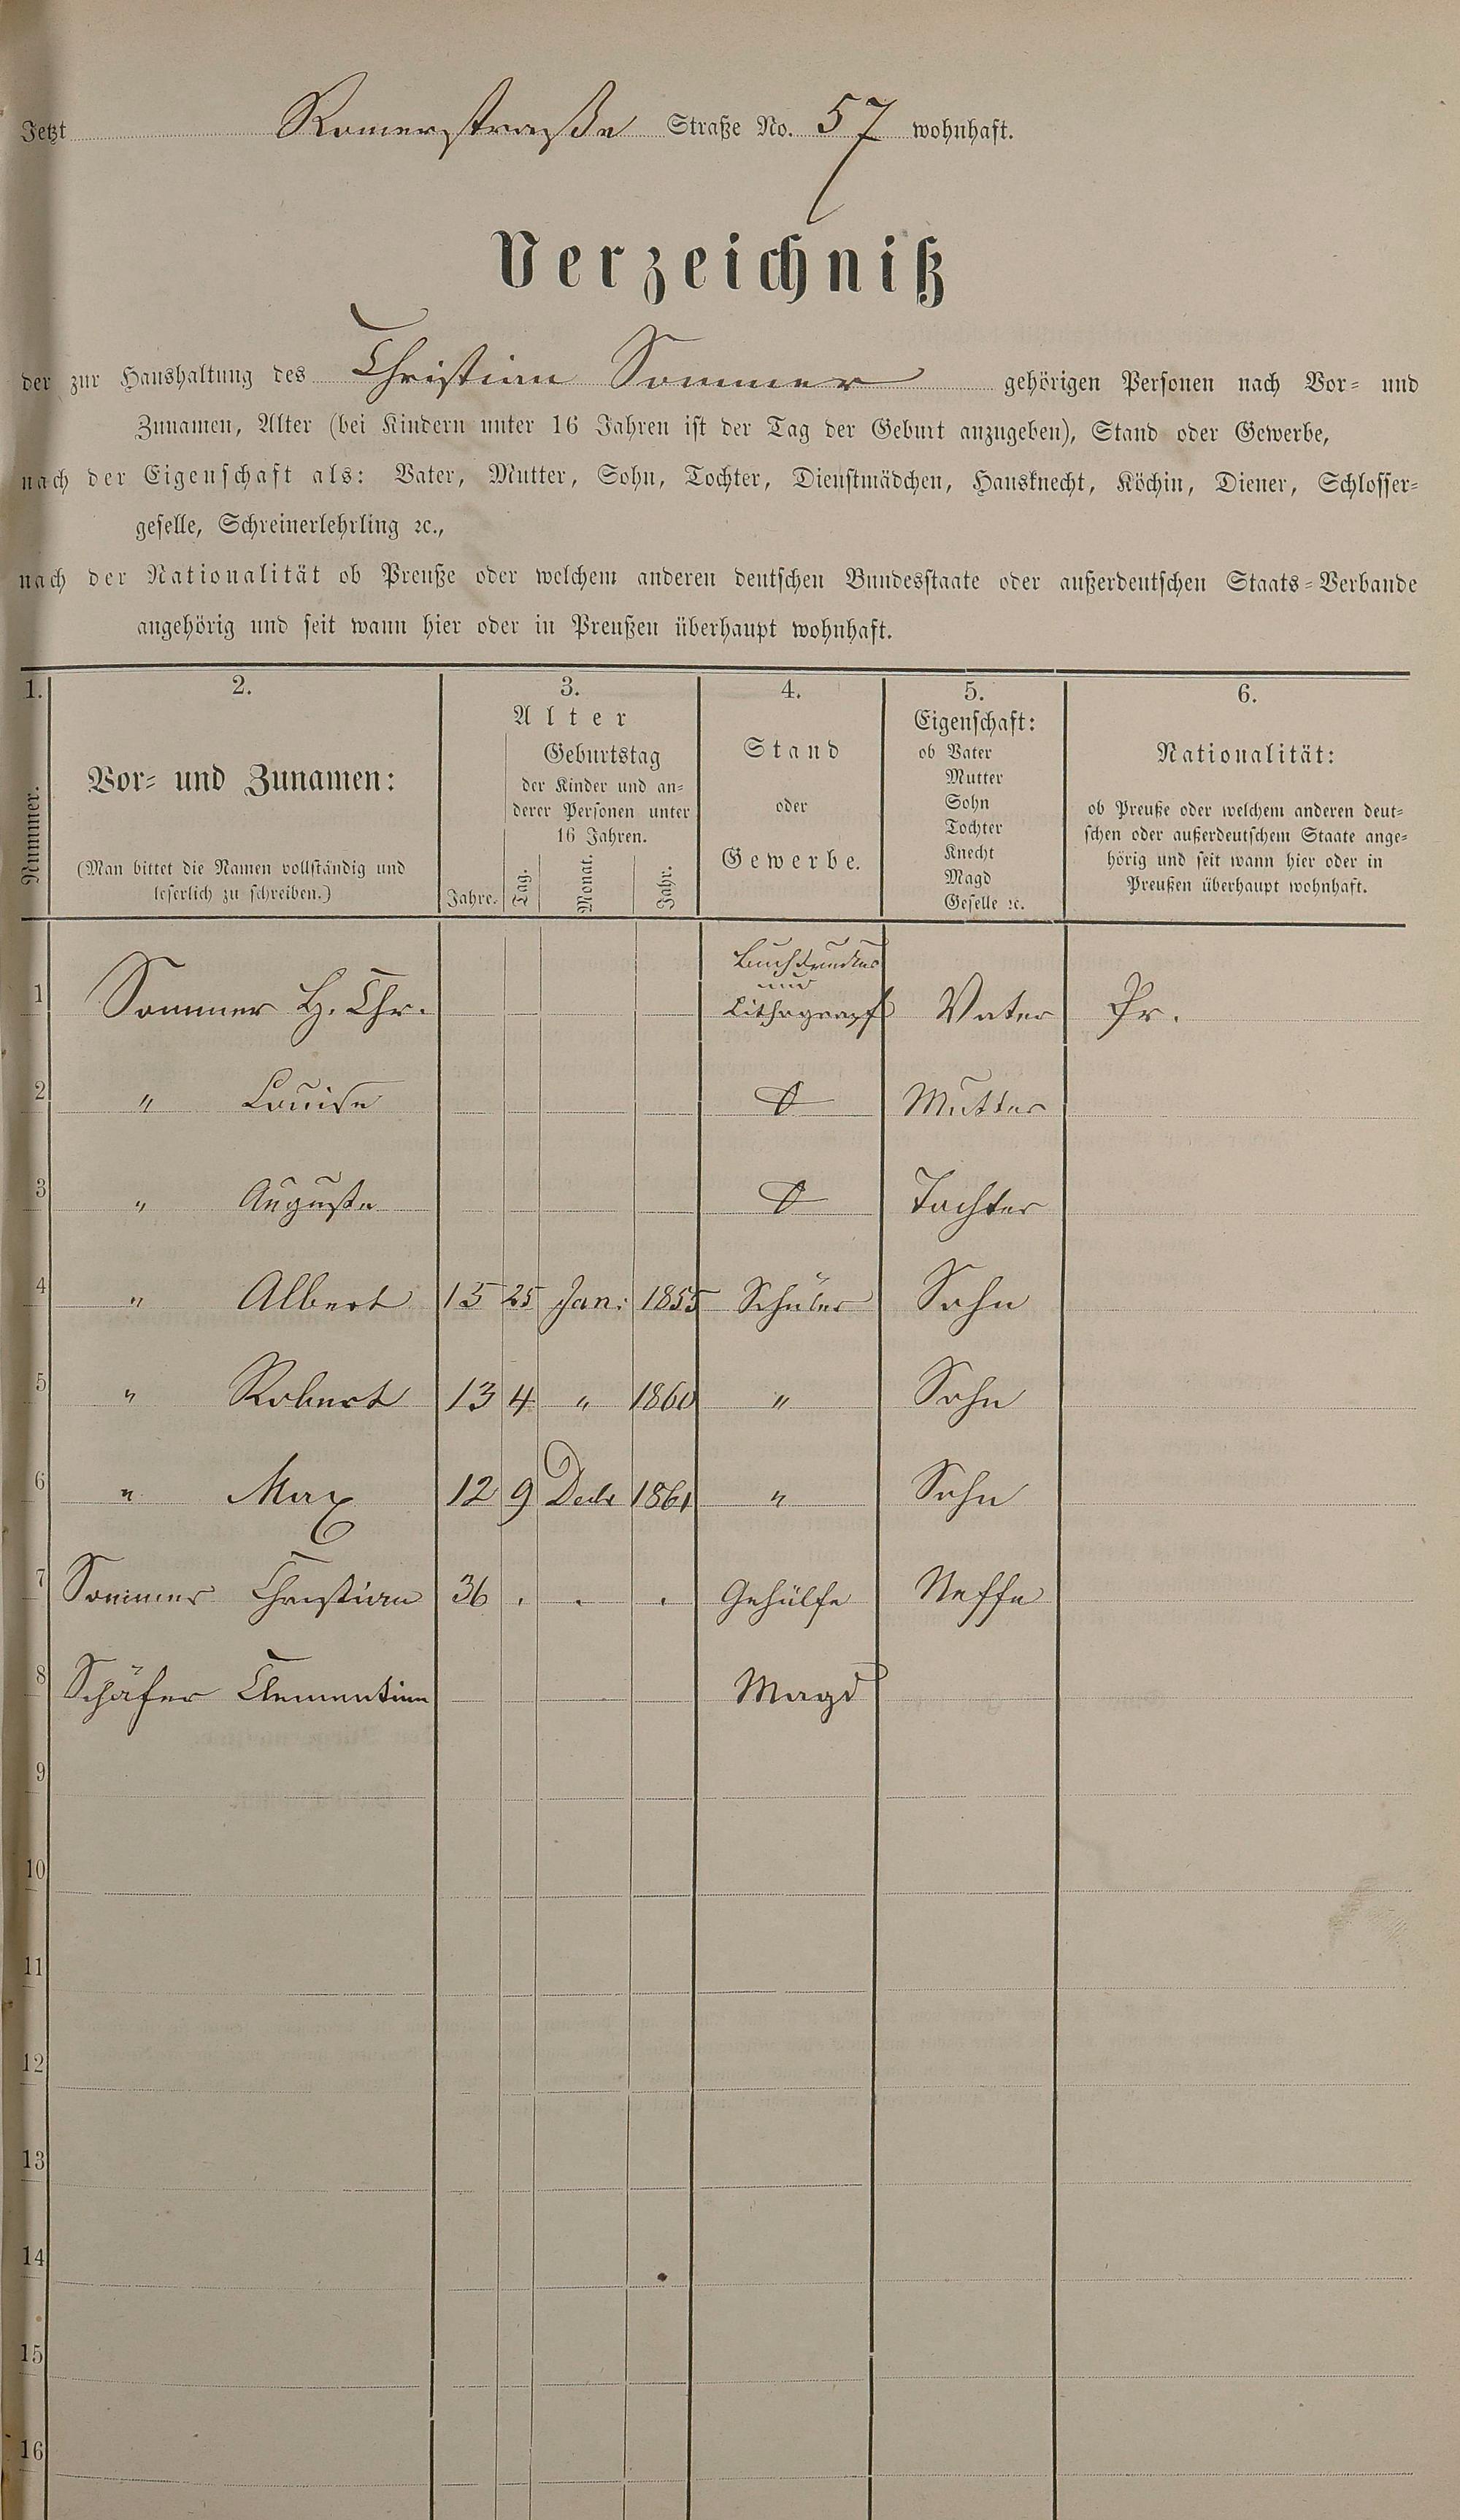 Jetzt Romerstraße Straße No. 57 wohnhaft.
Verzeichniß
der zur Haushaltung des Christian Sommer gehörigen Personen nach Vor- und
Zunamen, Alter (bei Kindern unter 16 Jahren ist der Tag der Geburt anzugeben), Stand oder Gewerbe,
nach der Eigenschaft als: Vater, Mutter, Sohn, Tochter, Dienstmädchen, Hausknecht, Köchin, Diener, Schlosser-
geselle, Schreinerlehrling ꝛc.,
nach der Nationalität ob Preuße oder welchem anderen deutschen Bundesstaate oder außerdeutschen Staats-Verbande
angehörig und seit wann hier oder in Preußen überhaupt wohnhaft.
1. 2. 3. 4. 5. 6.
Nummer.
Vor- und Zunamen:
(Man bittet die Namen vollständig und
leserlich zu schreiben.)
Alter
Jahre.
Geburtstag
der Kinder und an-
derer Personen unter
16 Jahren.
Tag. Monat. Jahr.
Stand
oder
Gewerbe.
Eigenschaft:
ob Vater
Mutter
Sohn
Tochter
Knecht
Magd
Geselle ꝛc.
Nationalität:
ob Preuße oder welchem anderen deut-
schen oder außerdeutschem Staate ange-
hörig und seit wann hier oder in
Preußen überhaupt wohnhaft.
Buchdrucker
und
1 Sommer H. Chr. Lithograph Vater Pr.
2 " Louise Mutter
3 " Auguste Tochter
4 " Albert 15 25 Jan: 1855 Schüler Sohn
5 " Robert 13 4 " 1860 " Sohn
6 " Max 12 9 Decbr 1861 " Sohn
7 Sommer Christian 36 . . . Gehülfe Neffe
8 Schäfer Clementine Magd
9
10
11
12
13
14
15
16